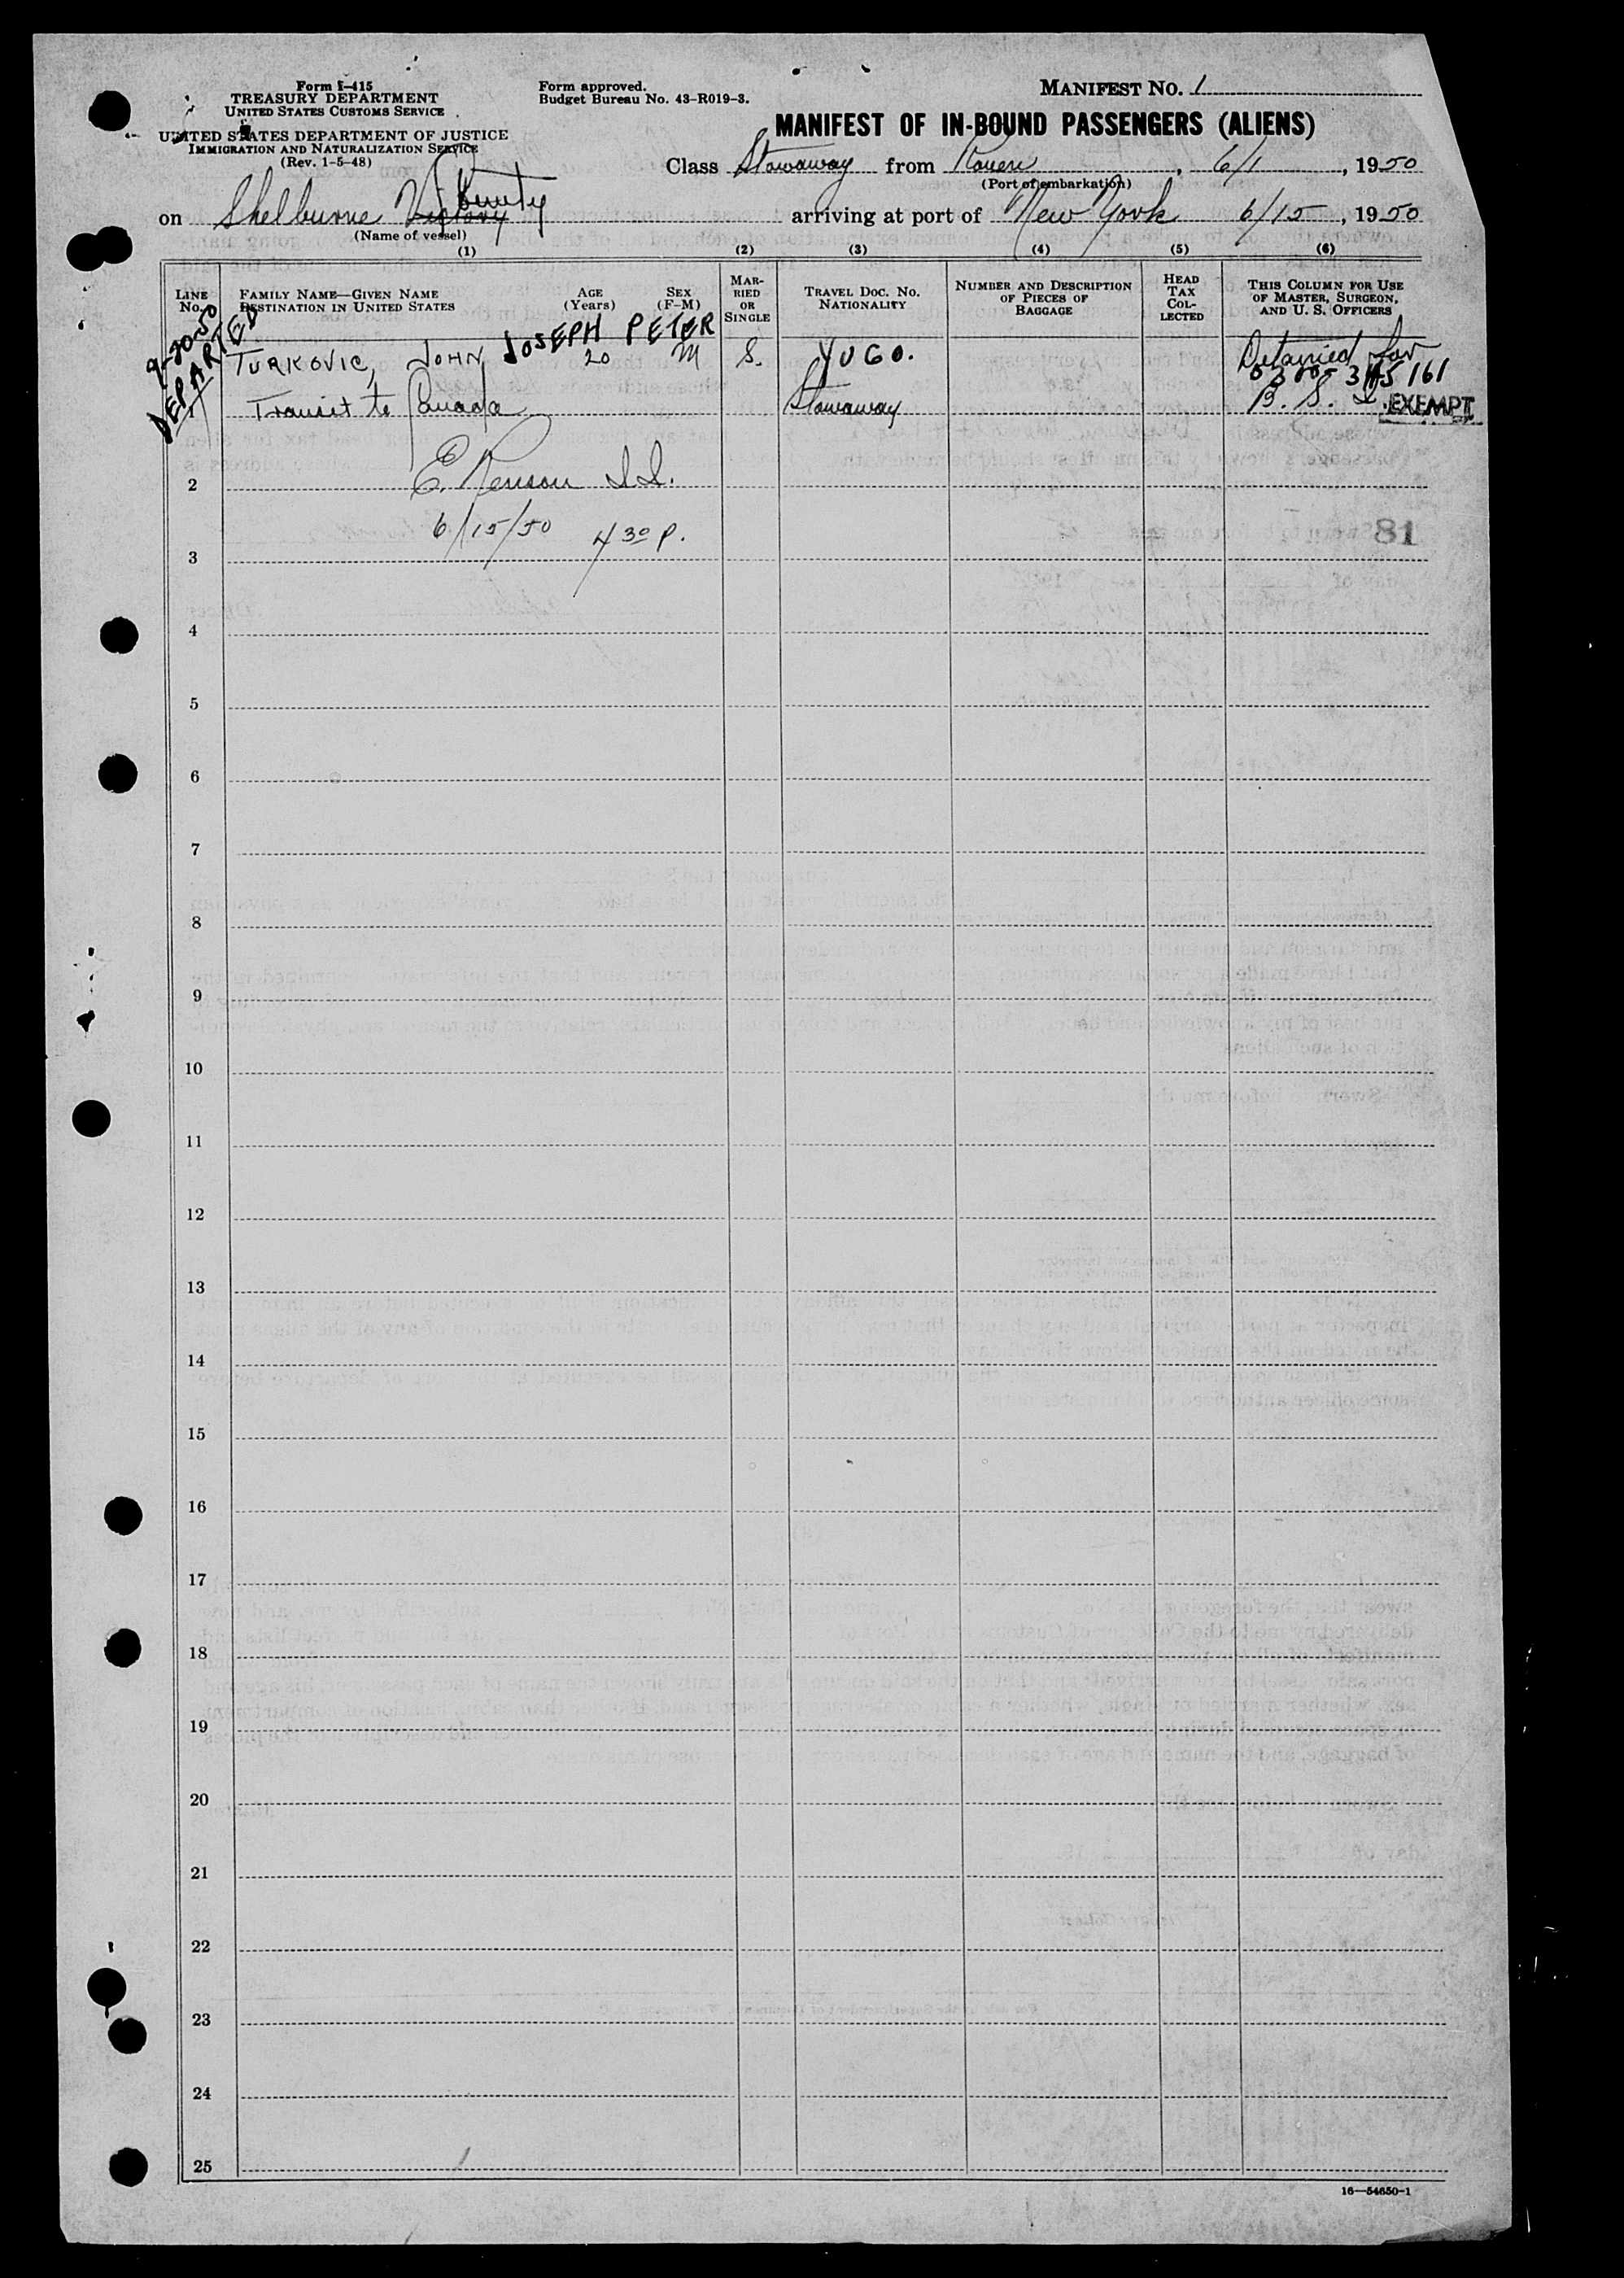 Form I-415
TREASURY DEPARTMENT
UNITED STATES CUSTOMS SERVICE
UNITED STATES DEPARTMENT OF JUSTICE
IMMIGRATION AND NATURALIZATION SERVICE
(Rev. 1-5-48)
Form approved.
Budget Bureau No. 43-R019-3.
MANIFEST NO. 1
MANIFEST OF IN-BOUND PASSENGERS (ALIENS)
Class Stowaway from Rouen, 6/1, 1950
(Port of embarkation)
County
on Shelburne Victory arriving at port of New York 6/15, 1950
(Name of vessel)
(1) (2) (3) (4) (5) (6)
LINE No. FAMILY NAME—GIVEN NAME DESTINATION IN UNITED STATES AGE (Years) SEX (F-M) MARRIED OR SINGLE TRAVEL DOC. NO. NATIONALITY NUMBER AND DESCRIPTION OF PIECES OF BAGGAGE HEAD TAX COLLECTED THIS COLUMN FOR USE OF MASTER, SURGEON, AND U. S. OFFICERS
9-20-50
DEPARTED
JOSEPH PETER
TURKOVIC, JOHN 20 M S. YUGO. Detained for
0300-345161
1 Transit to Canada Stowaway B. S. I. EXEMPT
2 E. Renson I.I.
6/15/50 4 30 P.
81
3
4
5
6
7
8
9
10
11
12
13
14
15
16
17
18
19
20
21
22
23
24
25
16—54650-1